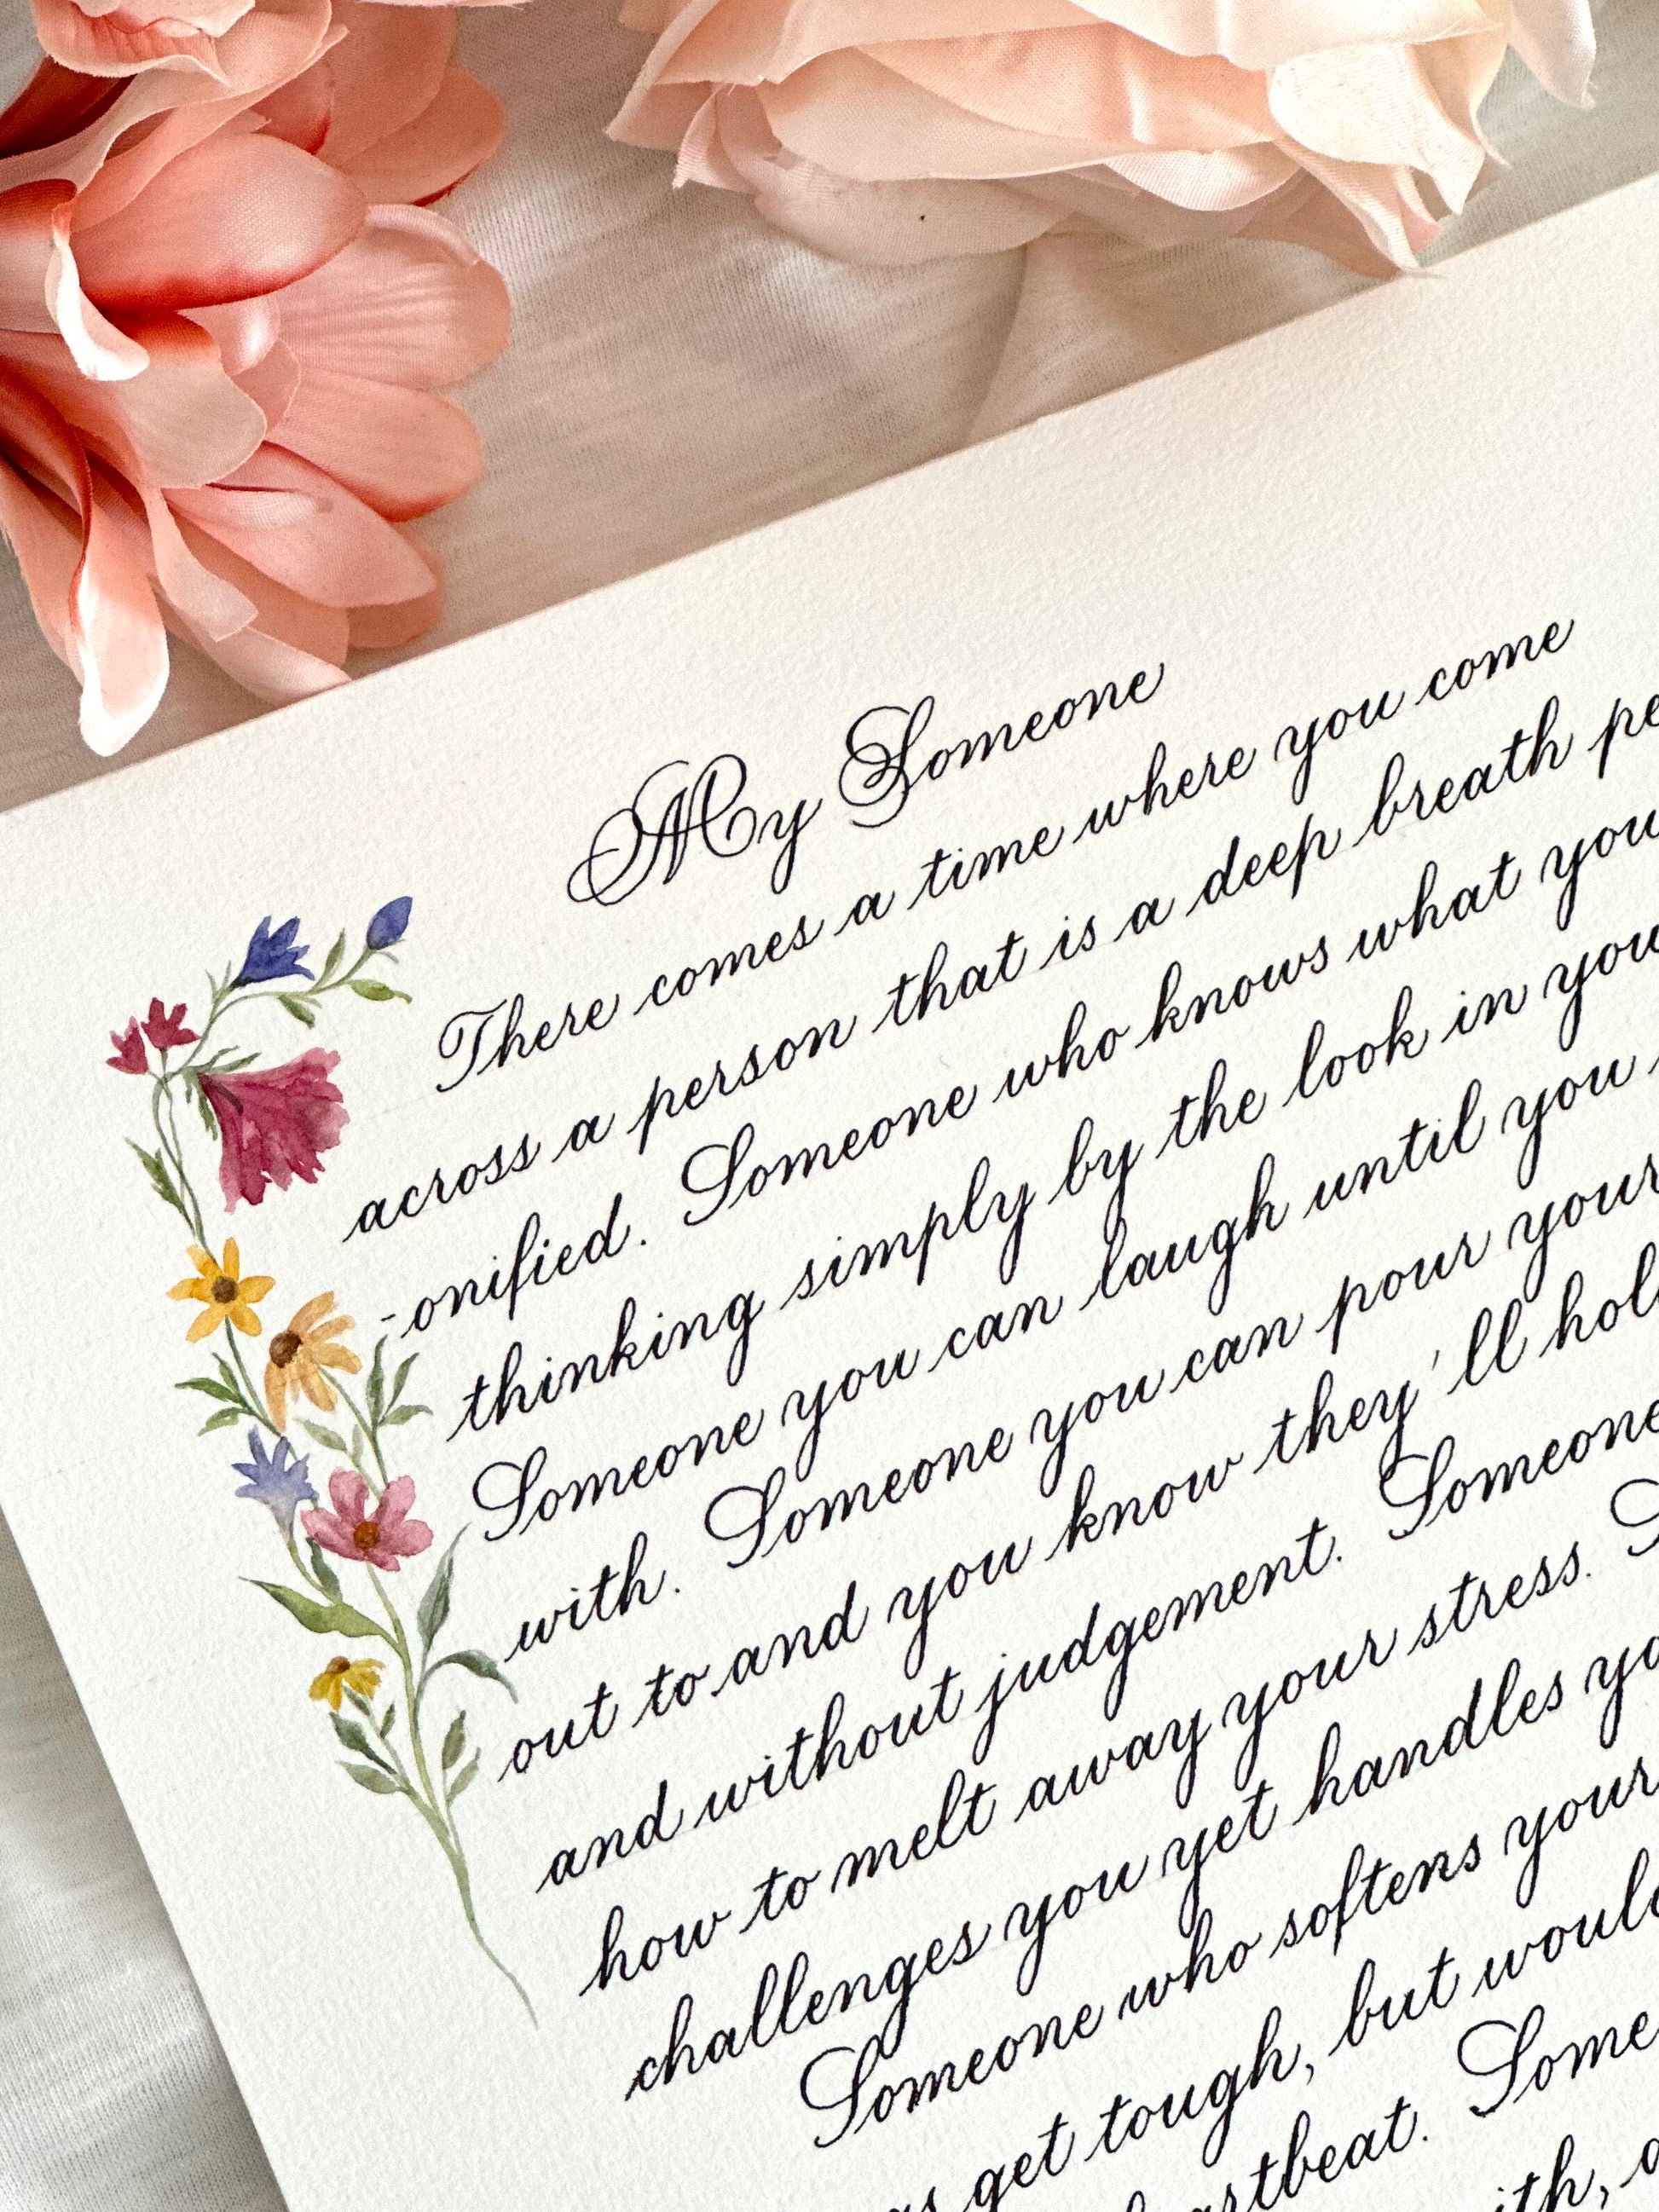 My Someone
There comes a time where you come
across a person that is a deep breath pe
-onified. Someone who knows what you
thinking simply by the look in you
Someone you can laugh until you
with. Someone you can pour your
out to and you know they'll hol
and without judgement. Someone
how to melt away your stress. S
challenges you yet handles yo
Someone who softens your
get tough, but would
rtbeat. Some
ith, a